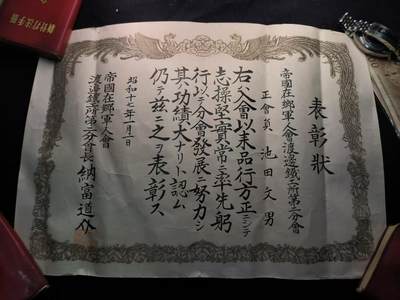 表彰狀
帝國在郷軍人會渡邊鐵工所第二分會
正會員 池田文男
右ハ入會以来品行方正ニシテ
志操堅實常ニ率先躬
行以テ分會發展ニ努力シ
其ノ功績大ナリト認ム
仍テ茲ニ之ヲ表彰ス
昭和十七年一月一日
帝國在郷軍人會
渡邊鐵工所第二分會長 納富道介